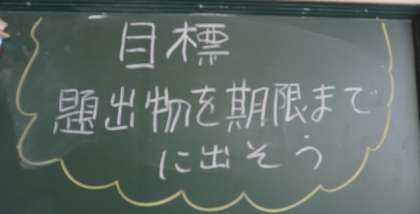 目標
題出物を期限まで
に出そう